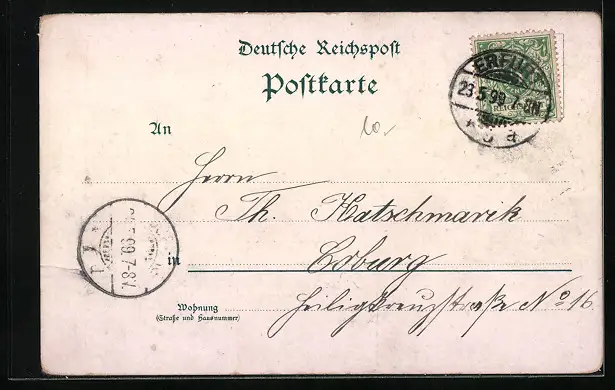 Deutsche Reichspost
Postkarte
ERFURT
23.5.99. 7-8N.
* 5 a
An
Herrn
Th. Hatschmarik
in Coburg
Wohnung
(Straße und Hausnummer)
Heiligkreuzstraße No 16
99. 7-8V.